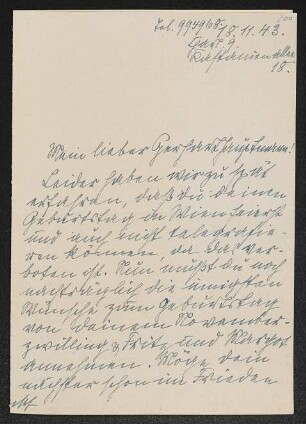 Tel. 994968. 18.11.43.
Kastanienallee
18.
Mein lieber Gerhart Hauptmann!
Leider haben wir zu spät
erfahren, daß du deinen
Geburtstag in Wien feierst
und auch nicht telegrafie-
ren können, da das ver-
boten ist. Nun mußt du noch
nachträglich die innigsten
Wünsche zum Geburtstag
von deinem November-
zwilling Fritz und Margot
annehmen. Möge dein
nächster schon im Frieden